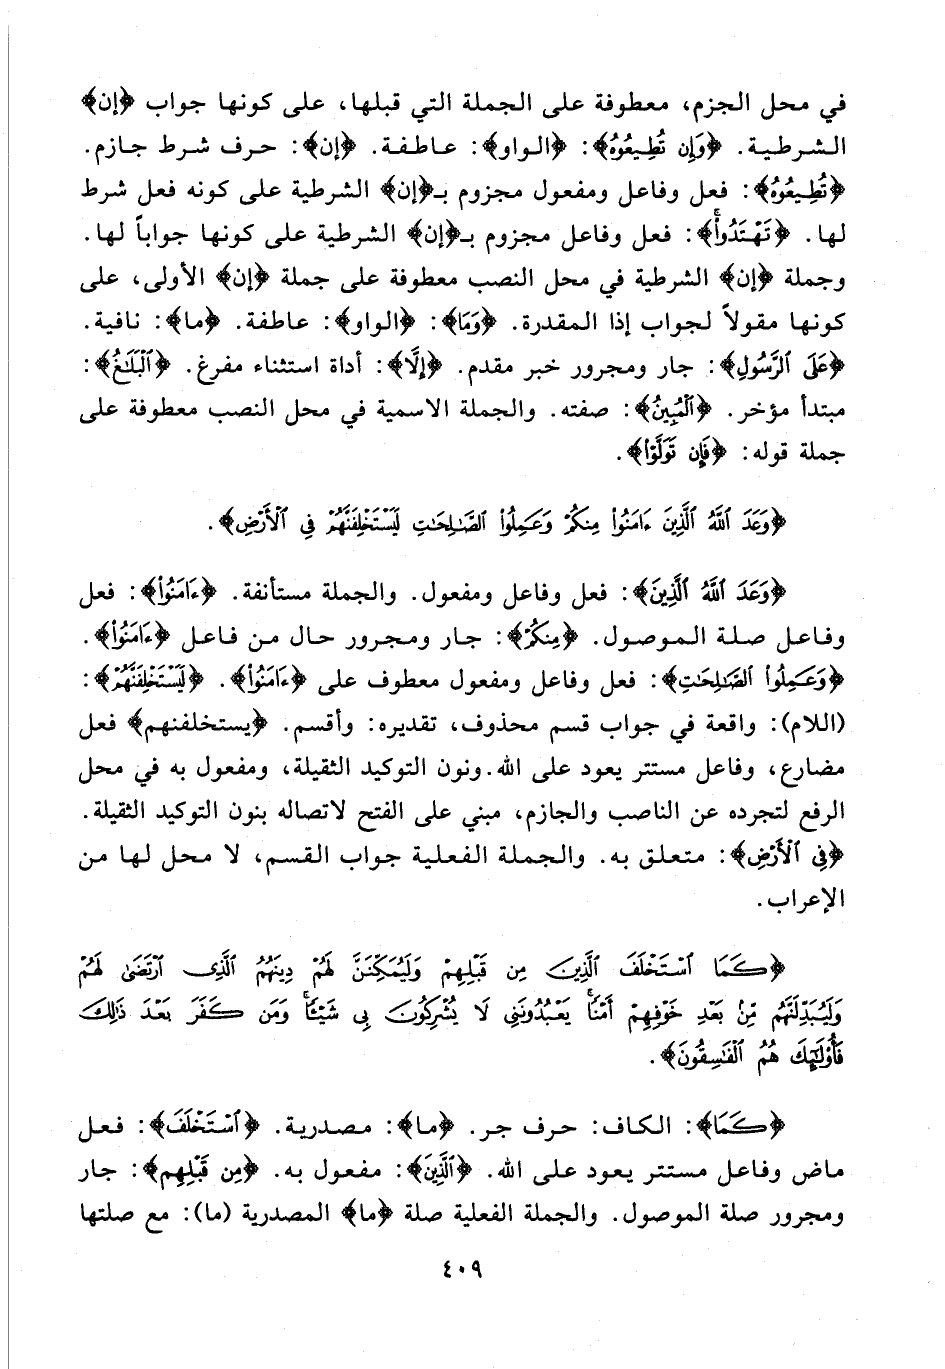 في محل الجزم، معطوفة على الجملة التي قبلها، على كونها جواب ﴿إن﴾
الشرطية. ﴿وَإِن تُطِيعُوهُ﴾: ﴿الواو﴾: عاطفة. ﴿إن﴾: حرف شرط جازم.
﴿تُطِيعُوهُ﴾: فعل وفاعل ومفعول مجزوم بـ﴿إن﴾ الشرطية على كونه فعل شرط
لها. ﴿تَهْتَدُواْۚ﴾: فعل وفاعل مجزوم بـ﴿إن﴾ الشرطية على كونها جواباً لها.
وجملة ﴿إن﴾ الشرطية في محل النصب معطوفة على جملة ﴿إن﴾ الأولى، على
كونها مقولاً لجواب إذا المقدرة. ﴿وَمَا﴾: ﴿الواو﴾: عاطفة. ﴿ما﴾: نافية.
﴿عَلَى ٱلرَّسُولِ﴾: جار ومجرور خبر مقدم. ﴿إِلَّا﴾: أداة استثناء مفرغ. ﴿ٱلْبَلَٰغُ﴾:
مبتدأ مؤخر. ﴿ٱلْمُبِينُ﴾: صفته. والجملة الاسمية في محل النصب معطوفة على
جملة قوله: ﴿فَإِن تَوَلَّوْاْ﴾.
﴿وَعَدَ ٱللَّهُ ٱلَّذِينَ ءَامَنُواْ مِنكُمْ وَعَمِلُواْ ٱلصَّٰلِحَٰتِ لَيَسْتَخْلِفَنَّهُمْ فِي ٱلْأَرْضِ﴾.
﴿وَعَدَ ٱللَّهُ ٱلَّذِينَ﴾: فعل وفاعل ومفعول. والجملة مستأنفة. ﴿ءَامَنُواْ﴾: فعل
وفاعل صلة الموصول. ﴿مِنكُمْ﴾: جار ومجرور حال من فاعل ﴿ءَامَنُواْ﴾.
﴿وَعَمِلُواْ ٱلصَّٰلِحَٰتِ﴾: فعل وفاعل ومفعول معطوف على ﴿ءَامَنُواْ﴾. ﴿لَيَسْتَخْلِفَنَّهُمْ﴾:
(اللام): واقعة في جواب قسم محذوف، تقديره: وأقسم. ﴿يستخلفنهم﴾ فعل
مضارع، وفاعل مستتر يعود على الله. ونون التوكيد الثقيلة، ومفعول به في محل
الرفع لتجرده عن الناصب والجازم، مبني على الفتح لاتصاله بنون التوكيد الثقيلة.
﴿فِي ٱلْأَرْضِ﴾: متعلق به. والجملة الفعلية جواب القسم، لا محل لها من
الإعراب.
﴿كَمَا ٱسْتَخْلَفَ ٱلَّذِينَ مِن قَبْلِهِمْ وَلَيُمَكِّنَنَّ لَهُمْ دِينَهُمُ ٱلَّذِي ٱرْتَضَىٰ لَهُمْ
وَلَيُبَدِّلَنَّهُم مِّنۢ بَعْدِ خَوْفِهِمْ أَمْنٗاۚ يَعْبُدُونَنِي لَا يُشْرِكُونَ بِي شَيْـٔٗاۚ وَمَن كَفَرَ بَعْدَ ذَٰلِكَ
فَأُوْلَٰٓئِكَ هُمُ ٱلْفَٰسِقُونَ﴾.
﴿كَمَا﴾: الكاف: حرف جر. ﴿ما﴾: مصدرية. ﴿ٱسْتَخْلَفَ﴾: فعل
ماض وفاعل مستتر يعود على الله. ﴿ٱلَّذِينَ﴾: مفعول به. ﴿مِن قَبْلِهِم﴾: جار
ومجرور صلة الموصول. والجملة الفعلية صلة ﴿ما﴾ المصدرية (ما): مع صلتها
٤٠٩